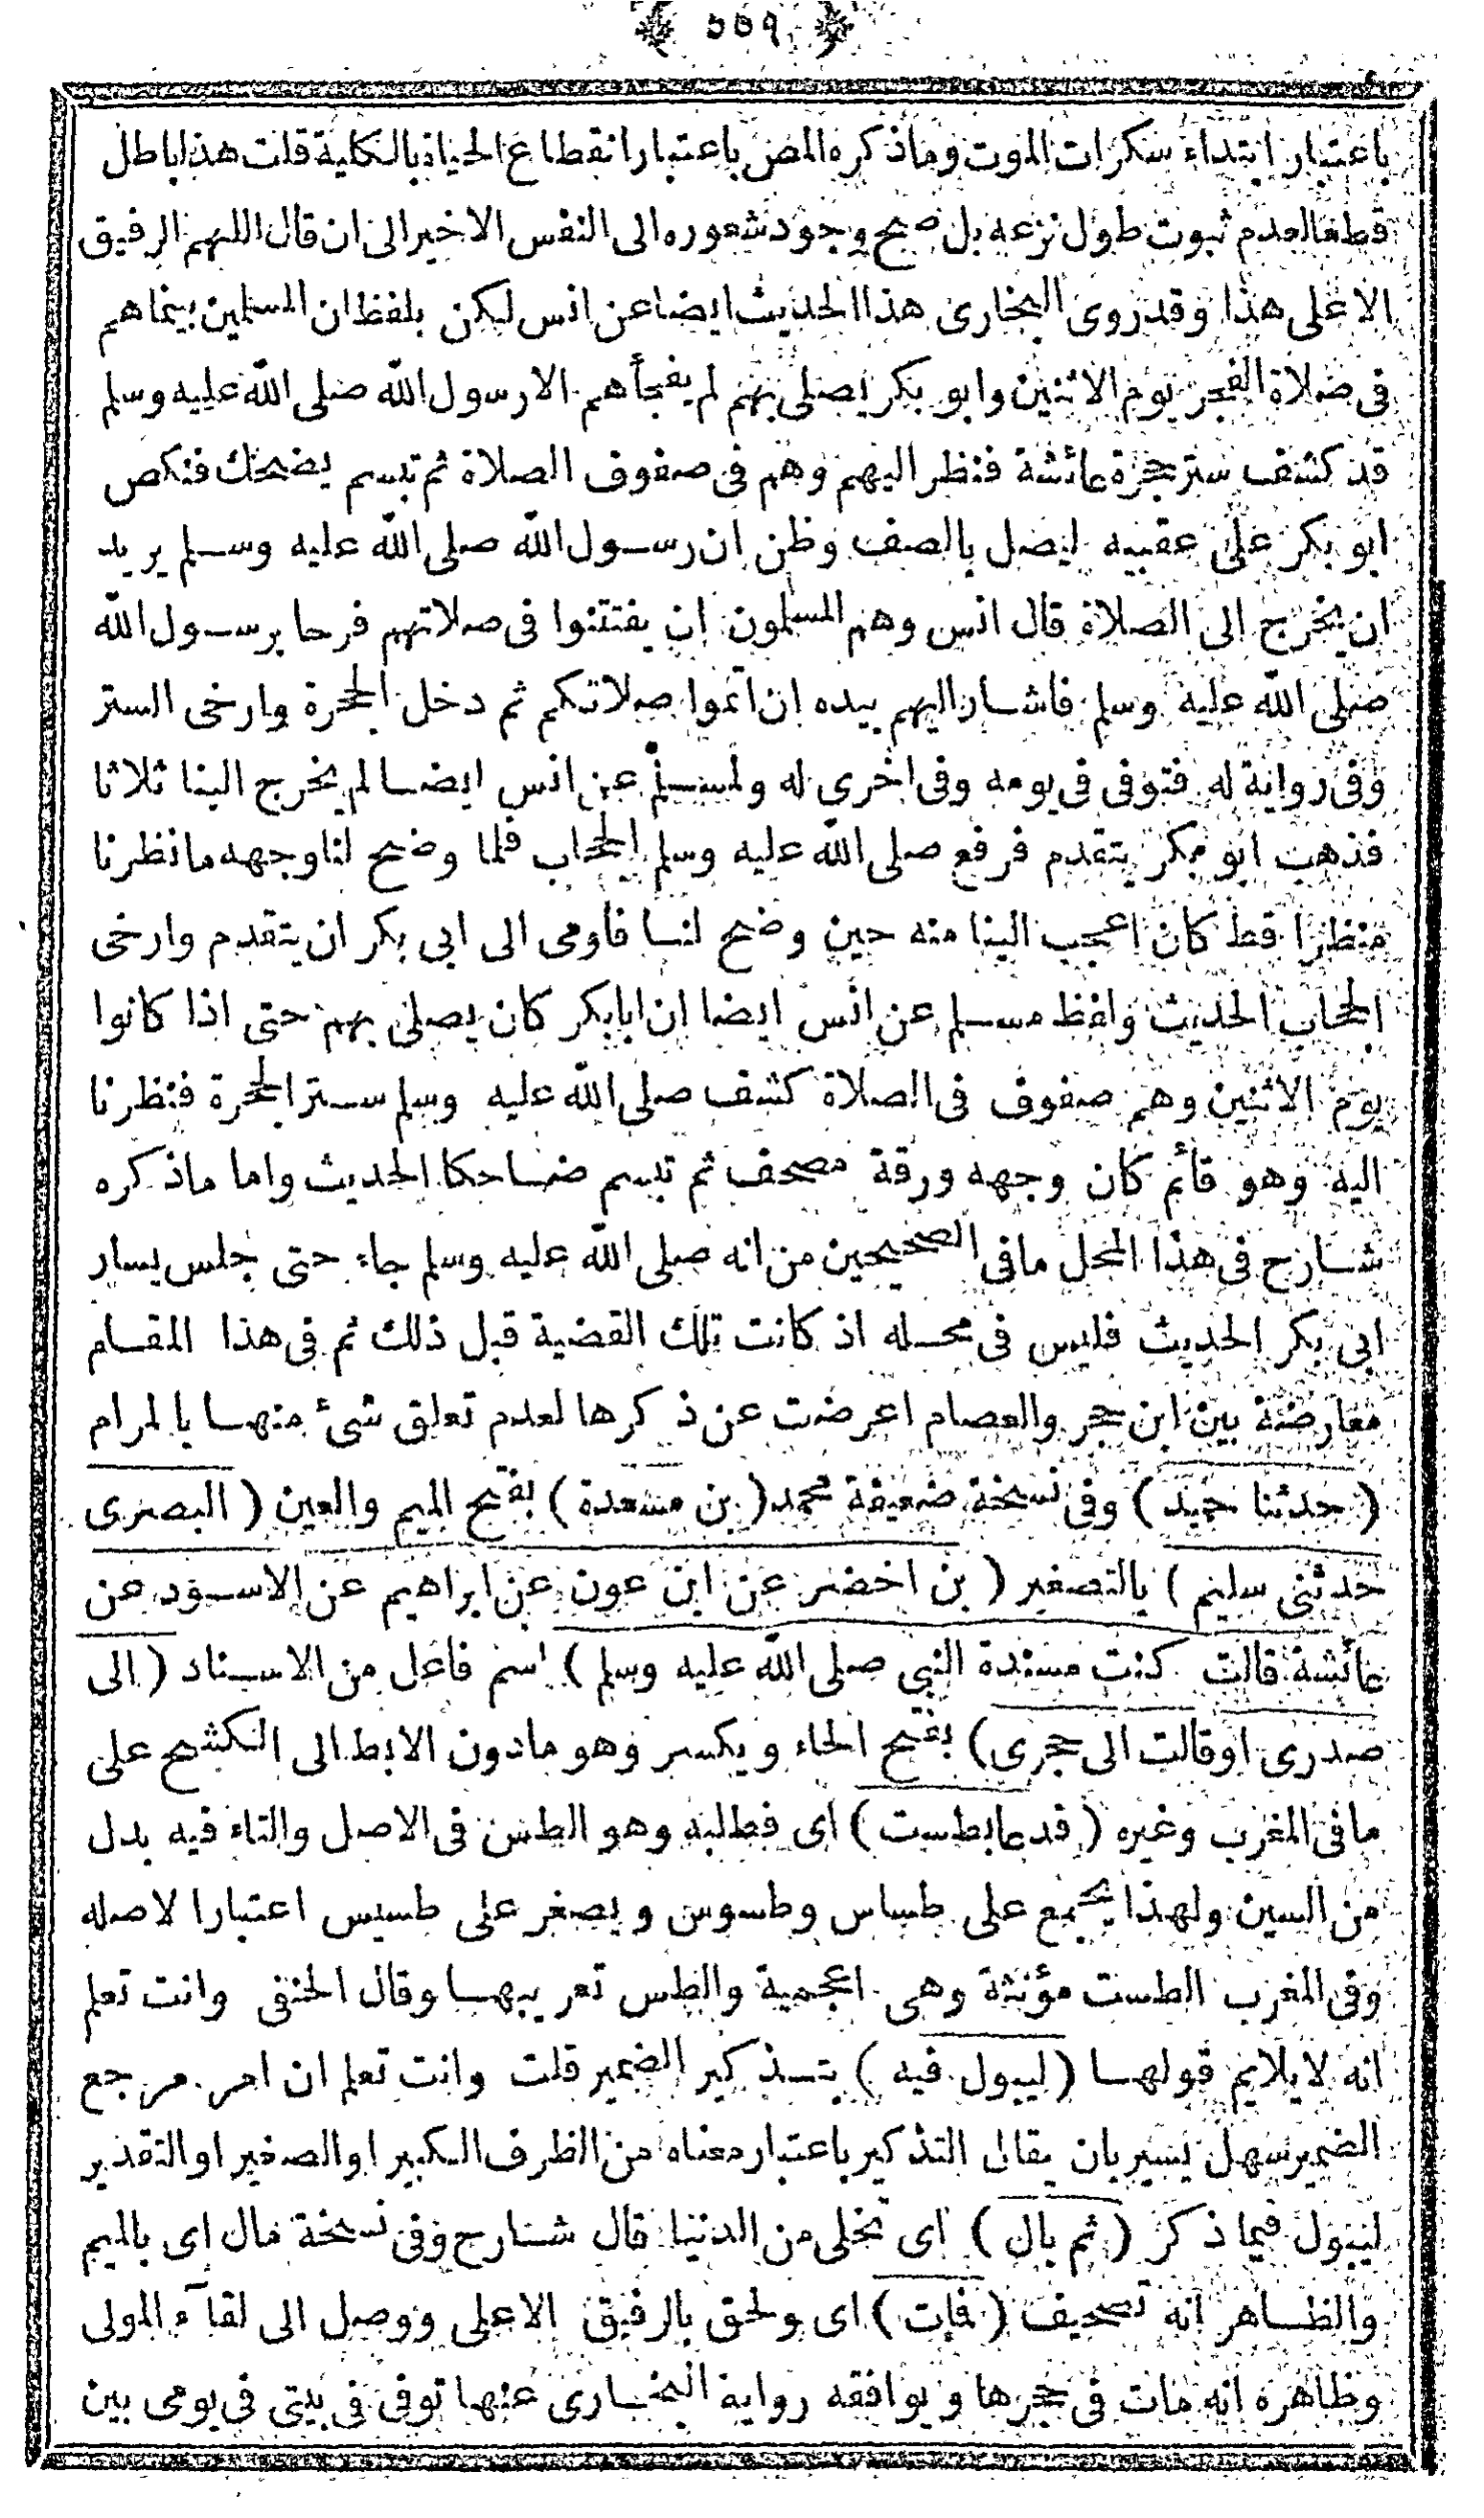 ﴿ ٥٥٩ ﴾
باعتبار ابتداء سكرات الموت وماذكره المص باعتبار انقطاع الحياة بالكلية قلت هذا باطل
قطعا لعدم ثبوت طول نزعه بل صح وجود شعوره الى النفس الاخير الى ان قال اللهم الرفيق
الاعلى هذا وقد روى البخارى هذا الحديث ايضا عن انس لكن بلفظ ان المسلمين بينماهم
فى صلاة الفجر يوم الاثنين وابو بكر يصلى بهم لم يفجأهم الارسول الله صلى الله عليه وسلم
قد كشف ستر حجرة عائشة فنظر اليهم وهم فى صفوف الصلاة ثم تبسم يضحك فنكص
ابو بكر على عقبيه ليصل بالصف وظن ان رسول الله صلى الله عليه وسلم يريد
ان يخرج الى الصلاة قال انس وهم المسلمون ان يفتتنوا فى صلاتهم فرحا برسول الله
صلى الله عليه وسلم فاشار اليهم بيده ان اتموا صلاتكم ثم دخل الحجرة وارخى الستر
وفى رواية له فتوفى فى يومه وفى اخرى له ولمسلم عن انس ايضا لم يخرج الينا ثلاثا
فذهب ابو بكر يتقدم فرفع صلى الله عليه وسلم الحجاب فلما وضح لنا وجهه مانظرنا
منظرا قط كان اعجب الينا منه حين وضح لنا فاومى الى ابى بكر ان يتقدم وارخى
الحجاب الحديث ولفظ مسلم عن انس ايضا ان ابابكر كان يصلى بهم حتى اذا كانوا
يوم الاثنين وهم صفوف فى الصلاة كشف صلى الله عليه وسلم ستر الحجرة فنظرنا
اليه وهو قائم كان وجهه ورقة مصحف ثم تبسم ضاحكا الحديث واما ماذكره
شارح فى هذا المحل مافى الصحيحين من انه صلى الله عليه وسلم جاء حتى جلس يسار
ابى بكر الحديث فليس فى محله اذ كانت تلك القضية قبل ذلك ثم فى هذا المقام
معارضة بين ابن حجر والعصام اعرضت عن ذكرها لعدم تعلق شئ منها بالمرام
( حدثنا حميد ) وفى نسخة ضعيفة محمد ( بن مسعدة ) بفتح الميم والعين ( البصرى
حدثنى سليم ) بالتصغير ( بن اخضر عن ابن عون عن ابراهيم عن الاسود عن
عائشة قالت كنت مسندة النبي صلى الله عليه وسلم ) اسم فاعل من الاسناد ( الى
صدرى او قالت الى حجرى ) بفتح الحاء ويكسر وهو مادون الابط الى الكشح على
مافى المغرب وغيره ( فدعا بطست ) اى فطلبه وهو الطس فى الاصل والتاء فيه بدل
من السين ولهذا يجمع على طساس وطسوس ويصغر على طسيس اعتبارا لاصله
وفى المغرب الطست مؤنثة وهى اعجمية والطس تعريبها وقال الحنفى وانت تعلم
انه لايلايم قولها ( ليبول فيه ) بتذكير الضمير قلت وانت تعلم ان امر مرجع
الضمير سهل يسير بان يقال التذكير باعتبار معناه من الظرف الكبير او الصغير او التقدير
ليبول فيما ذكر ( ثم بال ) اى تخلى من الدنيا قال شارح وفى نسخة مال اى بالميم
والظاهر انه تصحيف ( فمات ) اى ولحق بالرفيق الاعلى ووصل الى لقآء المولى
وظاهره انه مات فى حجرها ويوافقه رواية البخارى عنها توفى فى بيتى فى يومى بين